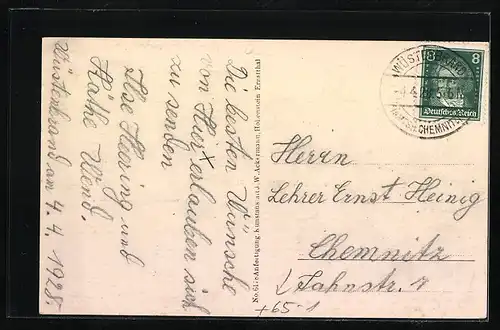 Die besten Wünsche
von Hier erlauben sich
zu senden
Ilse Heering und
Käthe Wend.
Wüstenbrand am 4.4.1928
Kunstanst. J. W. Ackermann, Hohenstein Ernstthal
WÜSTENBRAND
CHEMNITZ
8 8
Deutsches Reich
Herrn
Lehrer Ernst Heinig
Chemnitz
Jahnstr. 
+65-1